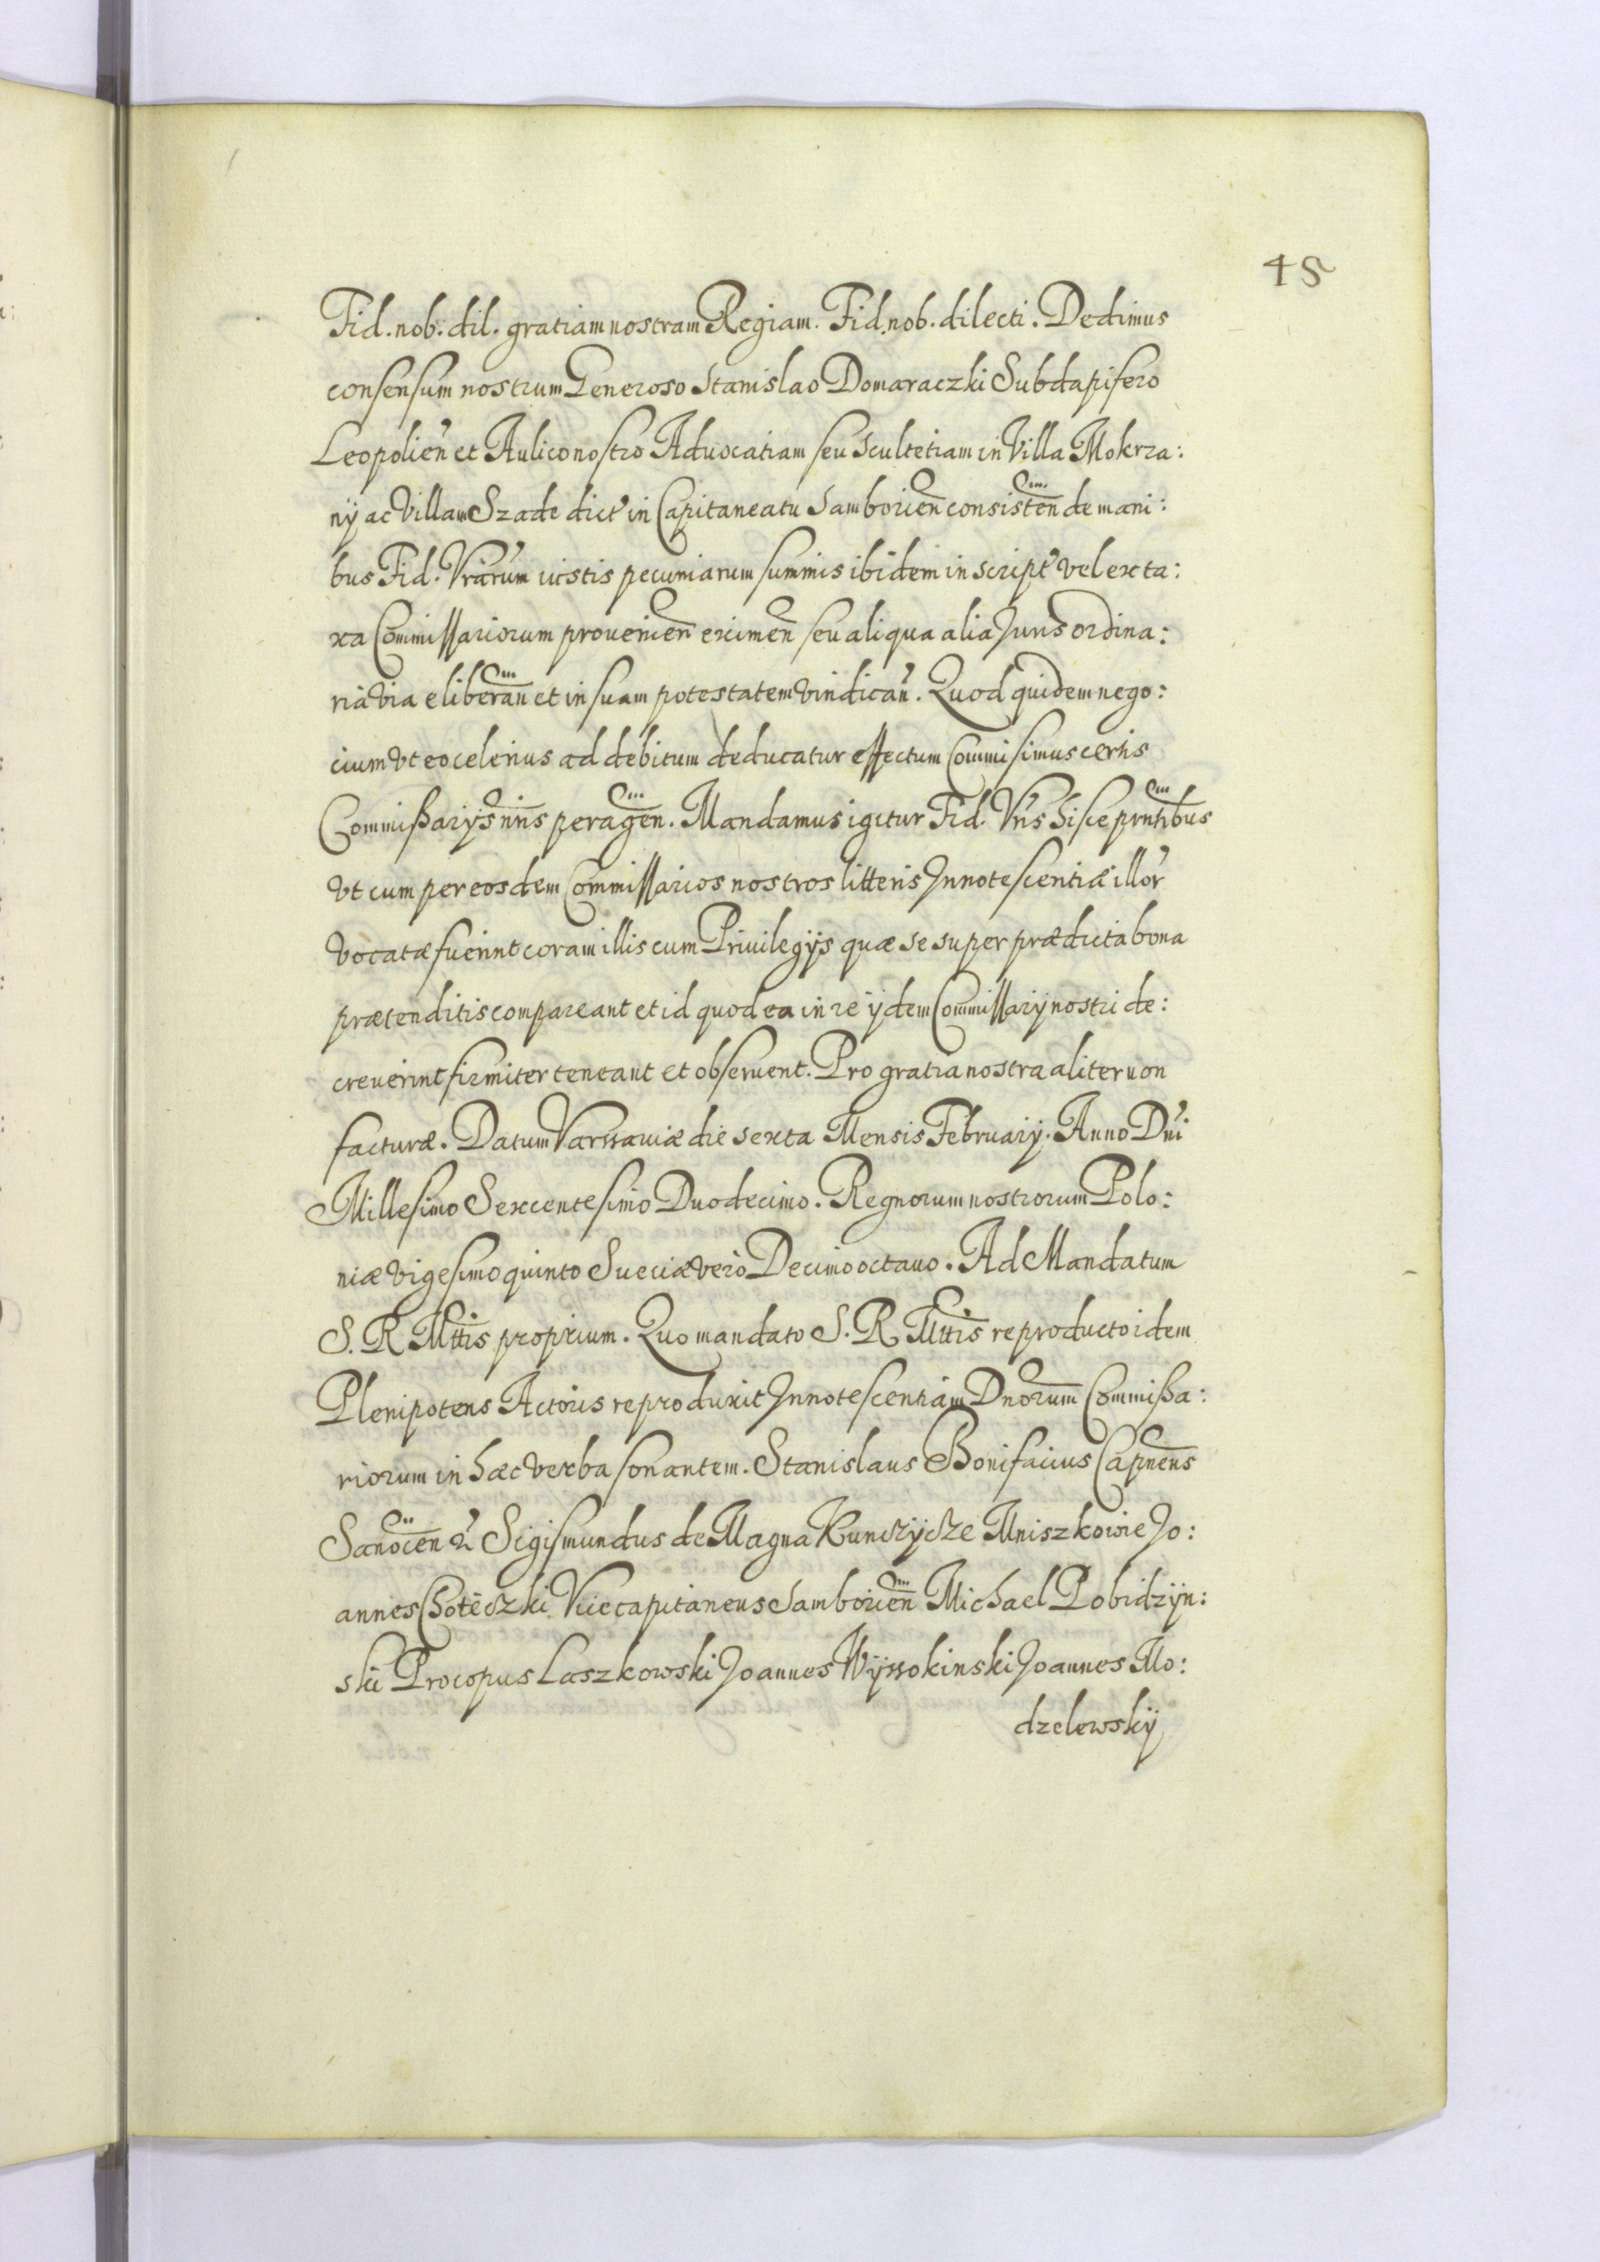 48
Fid. nob. dil. gratiam nostram Regiam. Fid. nob. dilecti. Dedimus
consensum nostrum Generoso Stanislao Domaraczki Subdapifero
Leopolien̄ et Aulico nostro Aduocatiam seu Scultetiam in Villa Mokrza:
nÿ ac Villam Szade dict' in Capitaneatu Samborien̄ consisten̄ de mani:
bus Fid. Vrārum iustis pecuniarum summis ibidem inscript' vel ex ta:
xa Commissariorum prouenien̄ eximen̄ seu aliqua alia Juris ordina:
ria via eliberan̄ et in suam potestatem vindican̄. Quod quidem nego:
cium vt eo celerius ad debitum deducatur effectum Commisimus certis
Commißarÿs nr̄is peragen̄. Mandamus igitur Fid. Vr̄is hisce prn̄tibus
vt cum per eosdem Commissarios nostros litteris Innotescentiæ illor'
vocatæ fuerint coram illis cum Priuilegÿs quæ se super prædicta bona
prætenditis compareant et id quod ea in re ÿdem Commissarÿ nostri de:
creuerint firmiter teneant et obseruent. Pro gratia nostra aliter non
facturæ. Datum Varssauiæ die sexta Mensis Februarÿ. Anno Dn̄i
Millesimo Sexcentesimo Duodecimo. Regnorum nostrorum Polo:
niæ vigesimo quinto Sueciæ vero Decimo octauo. Ad Mandatum
S. R. Mttis proprium. Quo mandato S. R. Mttis reproducto idem
Plenipotens Actoris reproduxit Innotescentiam Dn̄orum Commißa:
riorum in hæc verba sonantem. Stanislaus Bonifacius Capn̄eus
Sanocen̄ Sigismundus de Magna Kunczÿcze Mniszkowie Jo:
annes Choteczki Vicecapitaneus Samborien̄ Michael Pobidzÿn:
ski Procopus Laszkowski Joannes Wÿssokinski Joannes Mo:
dzelewskÿ